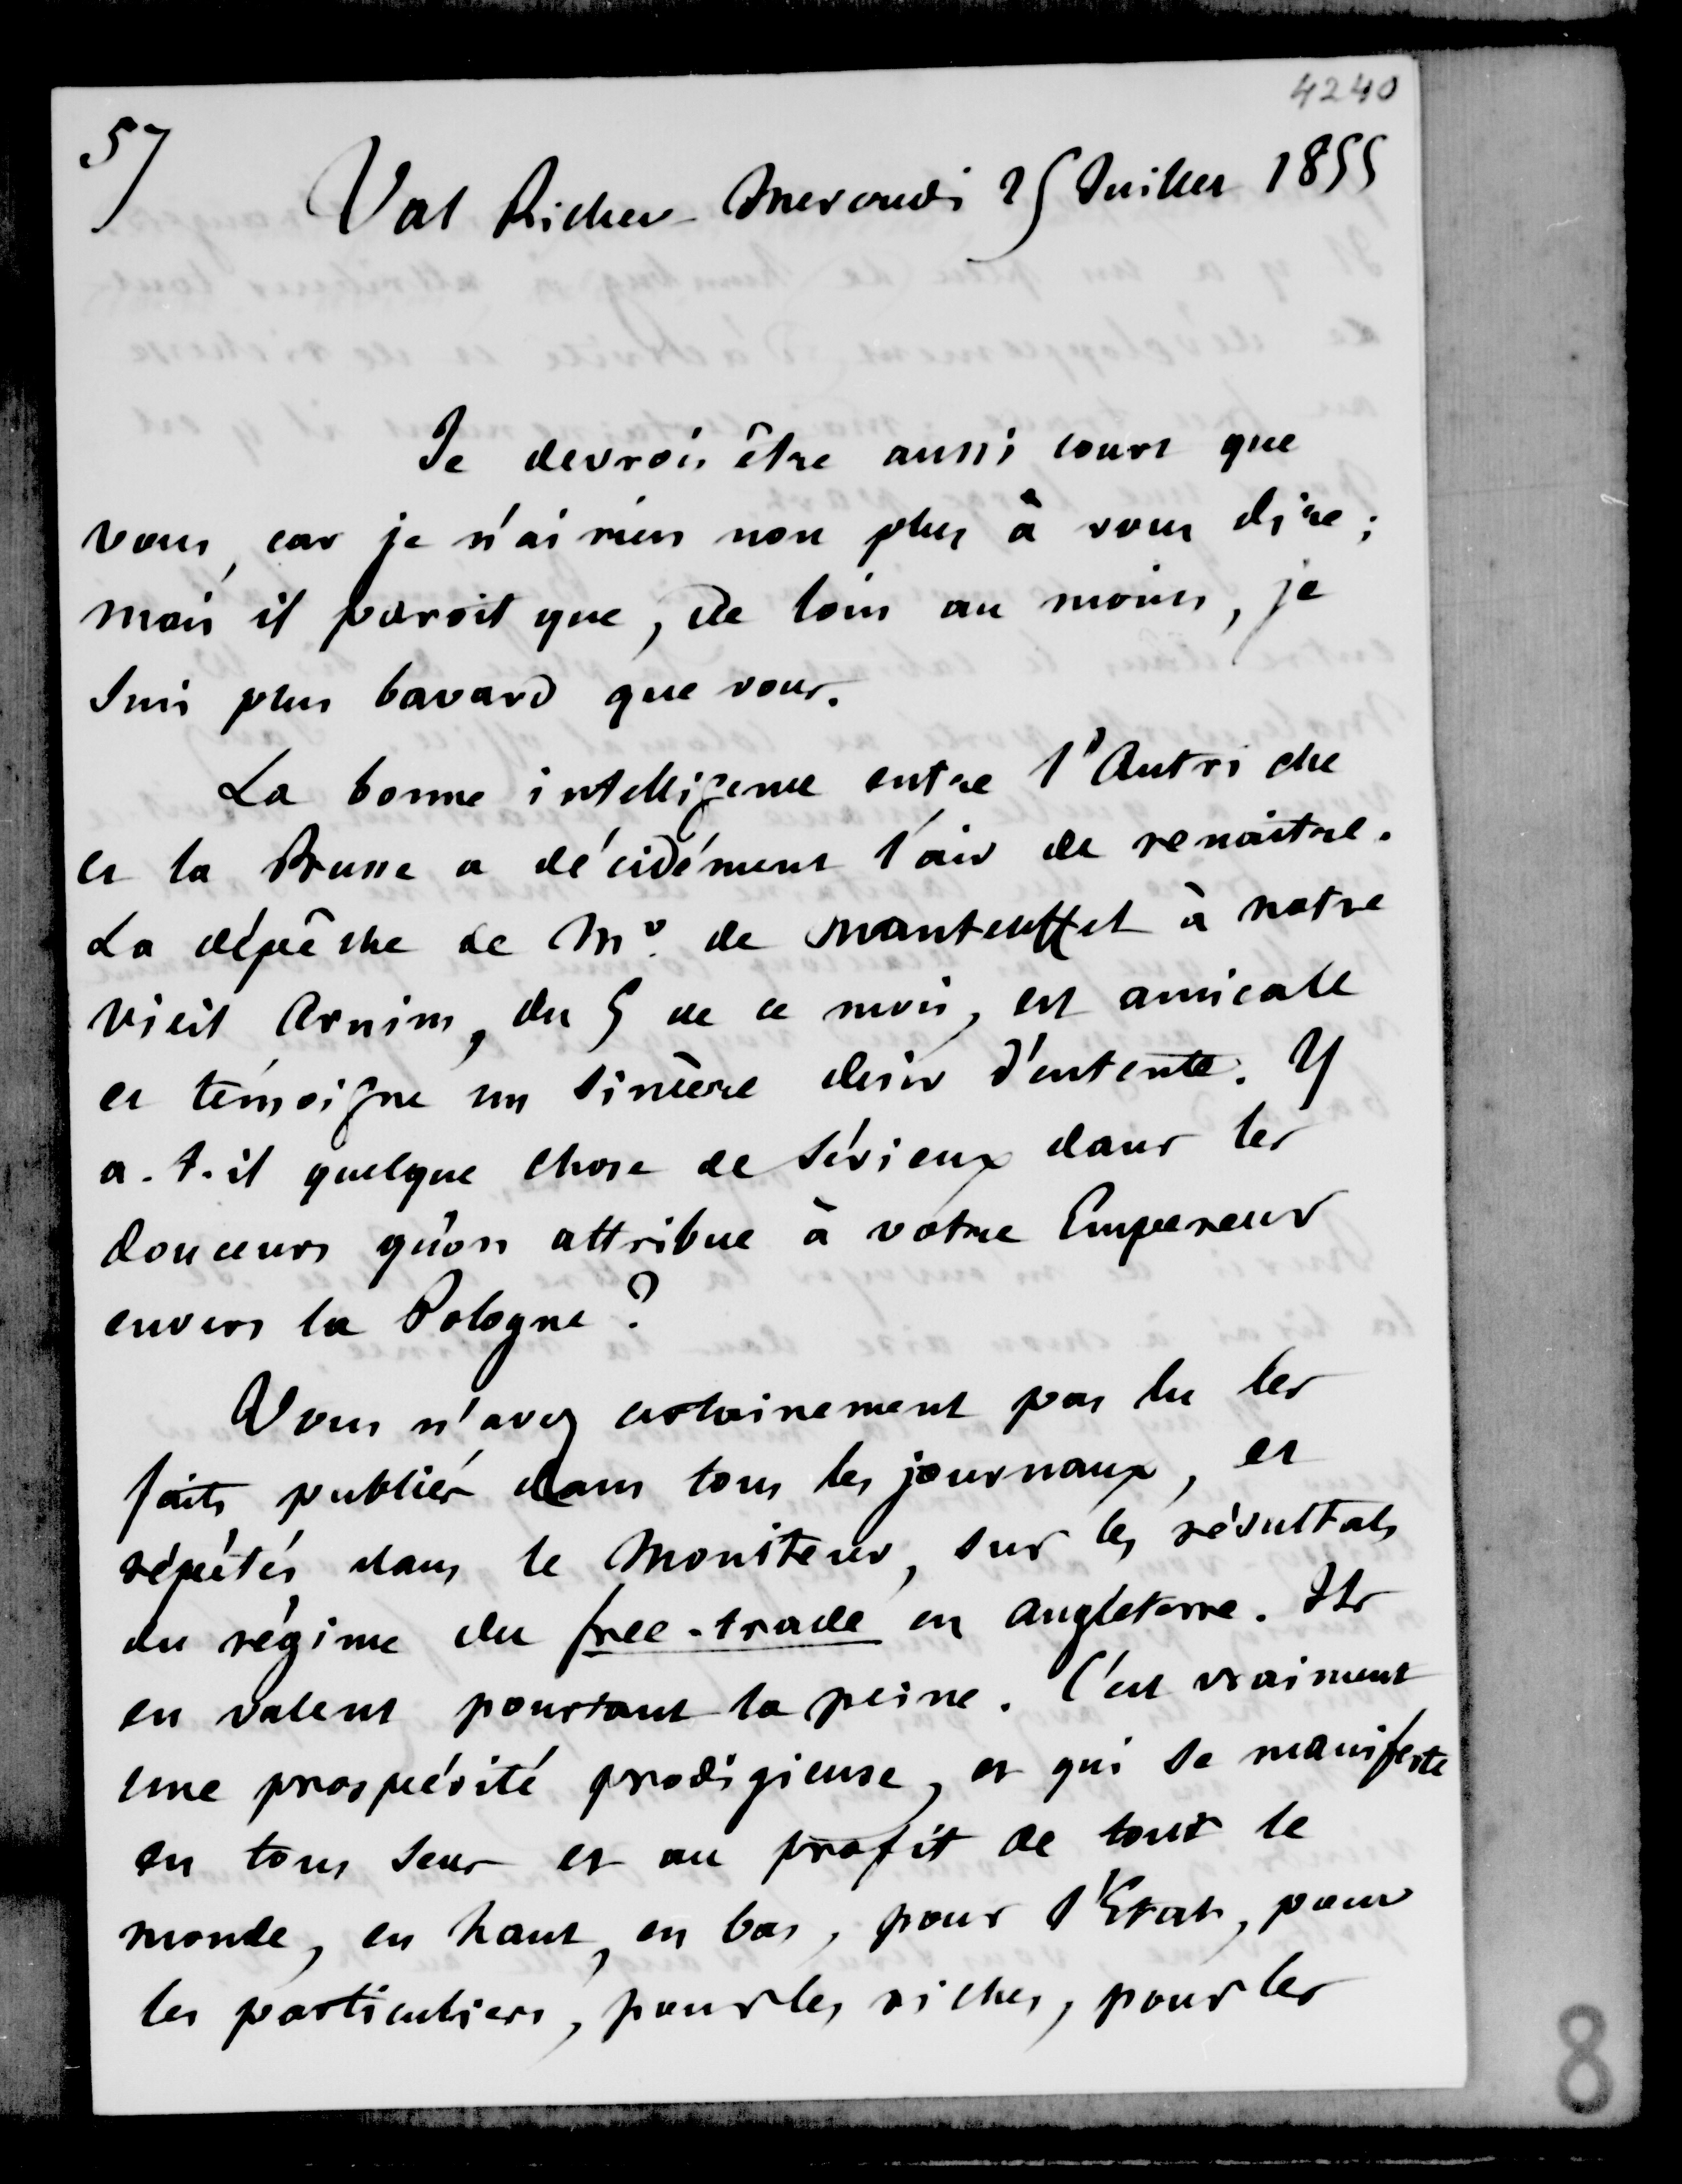 4240
57
Val Richer - Mercredi 25 Juillet 1855
Je devrois être aussi court que
vous, car je n'ai rien non plus à vous dire ;
mais il paroit que, de loin au moins, je
suis plus bavard que vous.
La bonne intelligence entre l'Autriche
et la Prusse a décidément l'air de renaitre.
La dépêche de Mr. de Manteuffel à notre
vieil Arnim, du 5 de ce mois, est amicale
et témoigne un sincère desir d'entente. Y
a-t-il quelque chose de sérieux dans les
douceurs qu'on attribue à votre Empereur
envers la Pologne ?
Vous n'avez certainement pas lu les
faits publiés dans tous les journaux, et
répétés dans le Moniteur, sur les résultats
du régime du free-trade en angleterre. Ils
en valent pourtant la peine. C'est vraiment
une prospérité prodigieuse, et qui se manifeste
en tous sens et au profit de tout le
monde, en haut, en bas, pour l'Etat, pour
les particuliers, pour les riches, pour les
8